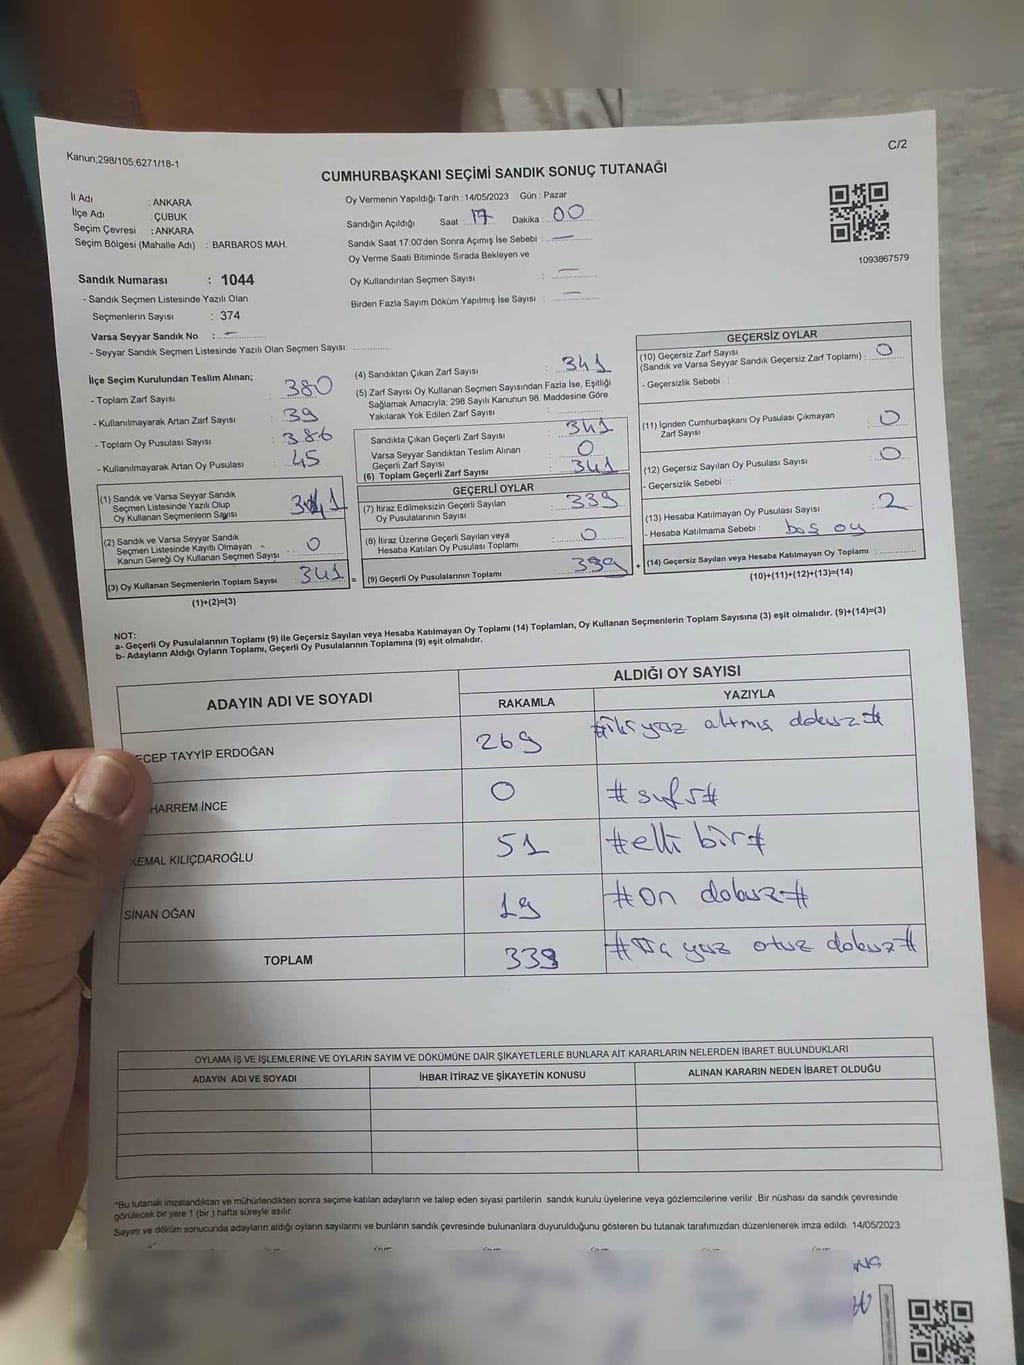 Kanun;298/105;6271/18-1
C/2
CUMHURBAŞKANI SEÇİMİ SANDIK SONUÇ TUTANAĞI
İl Adı : ANKARA
İlçe Adı : ÇUBUK
Seçim Çevresi : ANKARA
Seçim Bölgesi (Mahalle Adı) : BARBAROS MAH.
Oy Vermenin Yapıldığı Tarih :14/05/2023 Gün : Pazar
Sandığın Açıldığı Saat : 17 Dakika : 00
Sandık Saat 17:00'den Sonra Açımış İse Sebebi : —
Oy Verme Saati Bitiminde Sırada Bekleyen ve
Oy Kullandırılan Seçmen Sayısı : —
Birden Fazla Sayım Döküm Yapılmış İse Sayısı : —
1093867579
Sandık Numarası : 1044
- Sandık Seçmen Listesinde Yazılı Olan
Seçmenlerin Sayısı : 374
Varsa Seyyar Sandık No : —
- Seyyar Sandık Seçmen Listesinde Yazılı Olan Seçmen Sayısı:
İlçe Seçim Kurulundan Teslim Alınan;
- Toplam Zarf Sayısı : 380
- Kullanılmayarak Artan Zarf Sayısı : 39
- Toplam Oy Pusulası Sayısı : 386
- Kullanılmayarak Artan Oy Pusulası : 45
(1) Sandık ve Varsa Seyyar Sandık
Seçmen Listesinde Yazılı Olup
Oy Kullanan Seçmenlerin Sayısı : 341
(2) Sandık ve Varsa Seyyar Sandık
Seçmen Listesinde Kayıtlı Olmayan
Kanun Gereği Oy Kullanan Seçmen Sayısı : 0
(3) Oy Kullanan Seçmenlerin Toplam Sayısı : 341 =
(1)+(2)=(3)
(4) Sandıktan Çıkan Zarf Sayısı : 341
(5) Zarf Sayısı Oy Kullanan Seçmen Sayısından Fazla İse, Eşitliği
Sağlamak Amacıyla; 298 Sayılı Kanunun 98. Maddesine Göre
Yakılarak Yok Edilen Zarf Sayısı :
Sandıkta Çıkan Geçerli Zarf Sayısı : 341
Varsa Seyyar Sandıktan Teslim Alınan
Geçerli Zarf Sayısı : 0
(6) Toplam Geçerli Zarf Sayısı : 341
GEÇERLİ OYLAR
(7) İtiraz Edilmeksizin Geçerli Sayılan
Oy Pusulalarının Sayısı : 339
(8) İtiraz Üzerine Geçerli Sayılan veya
Hesaba Katılan Oy Pusulası Toplamı : 0
(9) Geçerli Oy Pusulalarının Toplamı : 339 +
GEÇERSİZ OYLAR
(10) Geçersiz Zarf Sayısı
(Sandık ve Varsa Seyyar Sandık Geçersiz Zarf Toplamı) : 0
- Geçersizlik Sebebi :
(11) İçinden Cumhurbaşkanı Oy Pusulası Çıkmayan
Zarf Sayısı : 0
(12) Geçersiz Sayılan Oy Pusulası Sayısı : 0
- Geçersizlik Sebebi :
(13) Hesaba Katılmayan Oy Pusulası Sayısı : 2
- Hesaba Katılmama Sebebi : boş oy
(14) Geçersiz Sayılan veya Hesaba Katılmayan Oy Toplamı :
(10)+(11)+(12)+(13)=(14)
NOT:
a- Geçerli Oy Pusulalarının Toplamı (9) ile Geçersiz Sayılan veya Hesaba Katılmayan Oy Toplamı (14) Toplamları, Oy Kullanan Seçmenlerin Toplam Sayısına (3) eşit olmalıdır. (9)+(14)=(3)
b- Adayların Aldığı Oyların Toplamı, Geçerli Oy Pusulalarının Toplamına (9) eşit olmalıdır.
ADAYIN ADI VE SOYADI
ALDIĞI OY SAYISI
RAKAMLA YAZIYLA
ECEP TAYYİP ERDOĞAN 269 #iki yüz altmış dokuz#
HARREM İNCE 0 #sıfır#
KEMAL KILIÇDAROĞLU 51 #elli bir#
SİNAN OĞAN 19 #On dokuz#
TOPLAM 339 #Üç yüz otuz dokuz#
OYLAMA İŞ VE İŞLEMLERİNE VE OYLARIN SAYIM VE DÖKÜMÜNE DAİR ŞİKAYETLERLE BUNLARA AİT KARARLARIN NELERDEN İBARET BULUNDUKLARI
ADAYIN ADI VE SOYADI İHBAR İTİRAZ VE ŞİKAYETİN KONUSU ALINAN KARARIN NEDEN İBARET OLDUĞU
*Bu tutanak imzalandıktan ve mühürlendikten sonra seçime katılan adayların ve talep eden siyasi partilerin sandık kurulu üyelerine veya gözlemcilerine verilir .Bir nüshası da sandık çevresinde
görülecek bir yere 1 (bir ) hafta süreyle asılır.
Sayım ve döküm sonucunda adayların aldığı oyların sayılarını ve bunların sandık çevresinde bulunanlara duyurulduğunu gösteren bu tutanak tarafımızdan düzenlenerek imza edildi. 14/05/2023